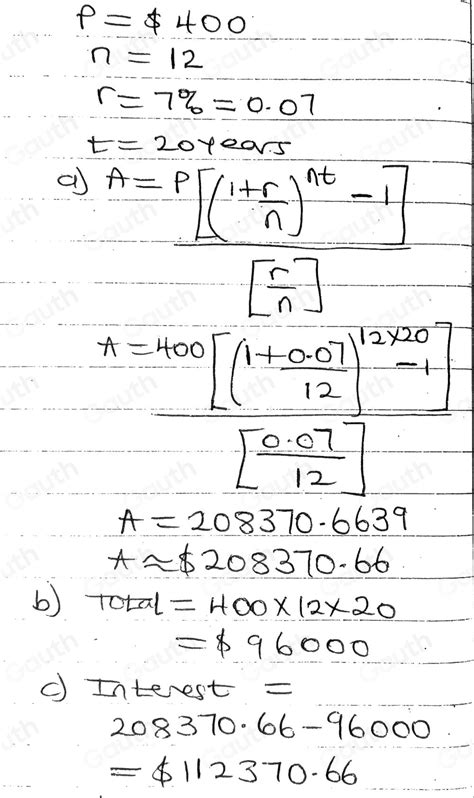 P = $ 400
n = 12
r = 7% = 0.07
t = 20 years
a) A = P[(1+r/n)^nt - 1] / [r/n]
A = 400[(1+0.07/12)^12×20 - 1] / [0.07/12]
A = 208370.6639
A ≈ $208370.66
b) Total = 400×12×20
= $ 96000
c) Interest =
208370.66 - 96000
= $112370.66